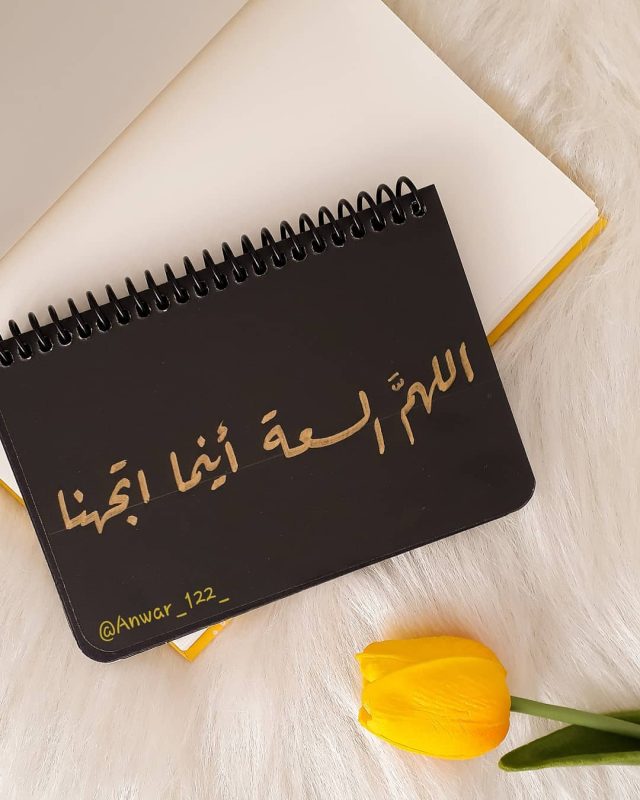 اللهمَّ السعة أينما اتجهنا
@Anwar_122_